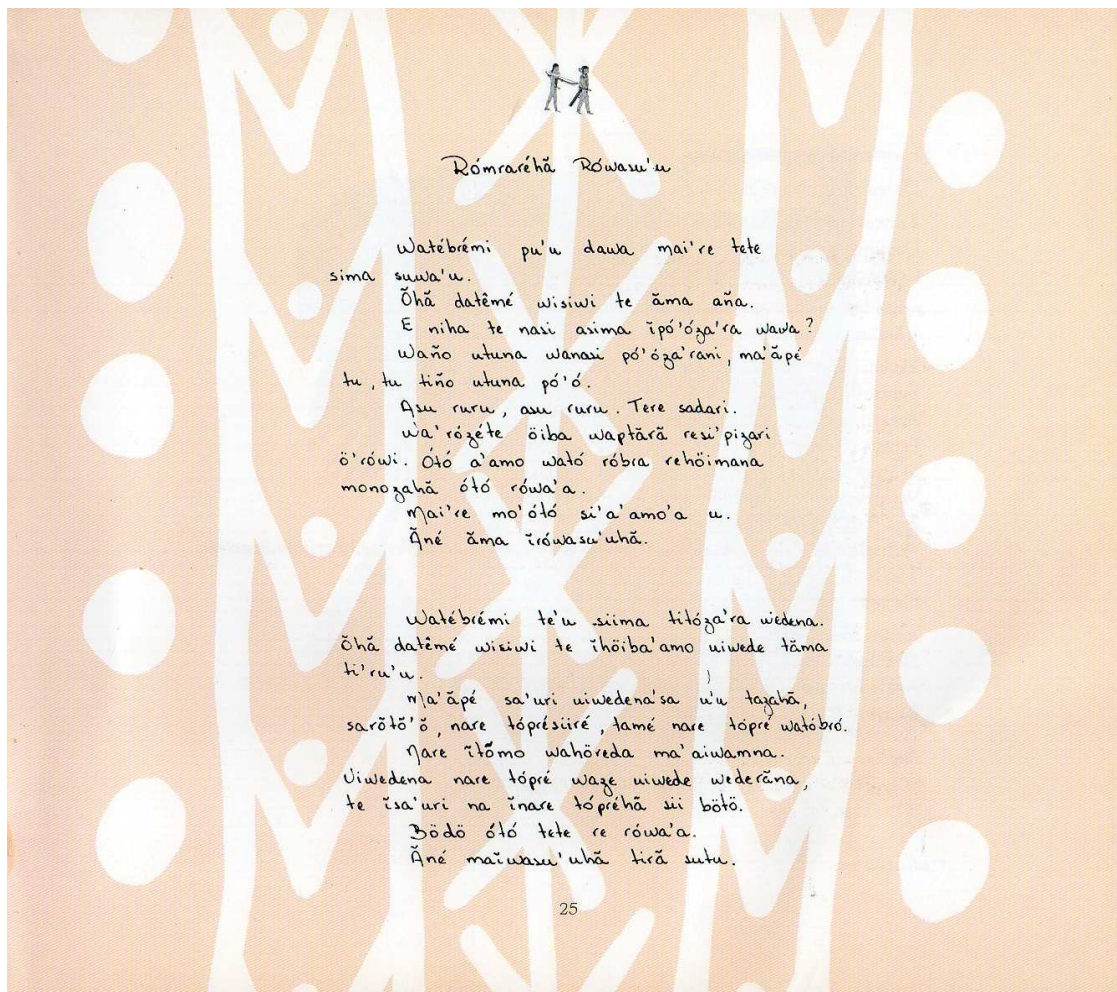 Rómraréhã Rówasu'u
Watébrémi pu'u dawa mai're tete
sima suwa'u.
Õhã datêmé wisiwi te ãma aña.
E niha te nasi asima ĩpó'óza'ra wawa?
Waño utuna wanasi pó'óza'rani, ma'ãpé
tu, tu tiño utuna pó'ó.
Asu ruru, asu ruru. Tere sadari.
Wa'rózéte öiba waptãrã resi'pizari
ö'rówi. Ótó a'amo wató róbra rehöimana
monozahã ótó rówa'a.
Mai're mo'ótó si'a'amo'a u.
Ãné ãma ĩrówasu'uhã.
Watébrémi te'u siima titóza'ra wedena.
Õhã datêmé wisiwi te ĩhöiba'amo uiwede tãma
ti'ru'u.
Ma'ãpé sa'uri uiwedena'sa u'u tazahã,
sarõtõ'õ, nare tóprésiiré, tamé nare tópré watóbró.
Nare ĩtõmo wahöreda ma'aiwamna.
Uiwedena nare tópré waze uiwede wederãna,
te ĩsa'uri na ĩnare tópréhã sii bötö.
Bödö ótó tete re rówa'a.
Ãné maĩwasu'uhã tirã sutu.
25